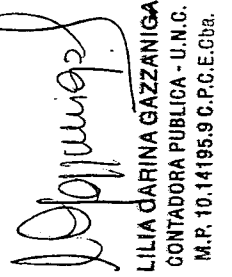 LILIA DARINA GAZZANIGA
CONTADORA PUBLICA - U.N.C.
M.P. 10.14195.9 C.P.C.E.Cba.